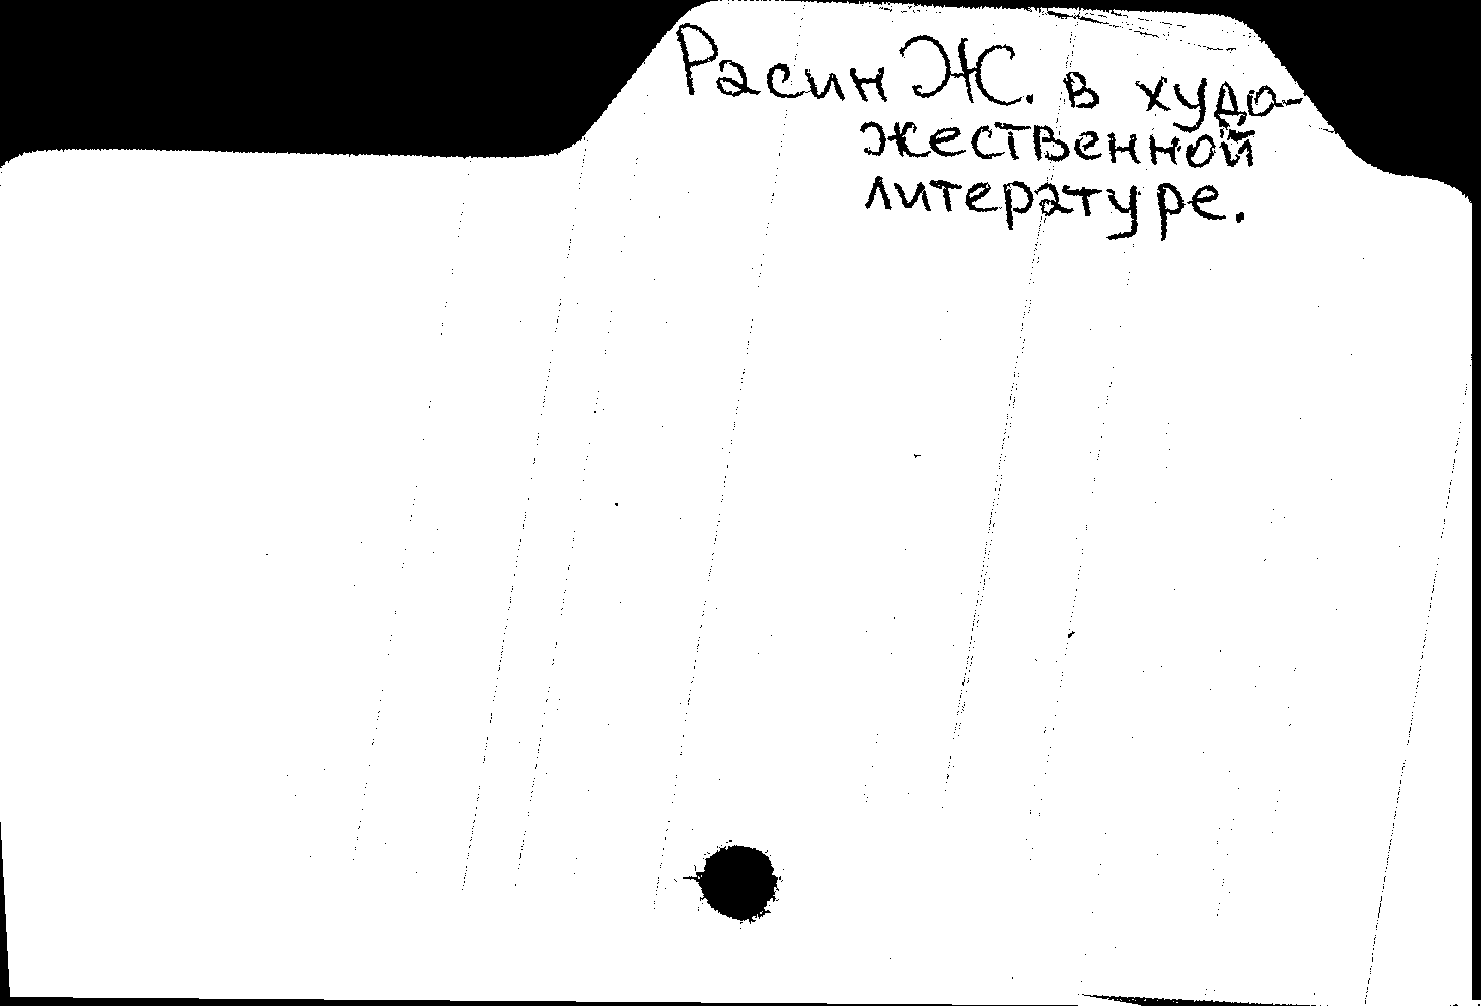 Расин Ж. в худо-
жественной
литературе.